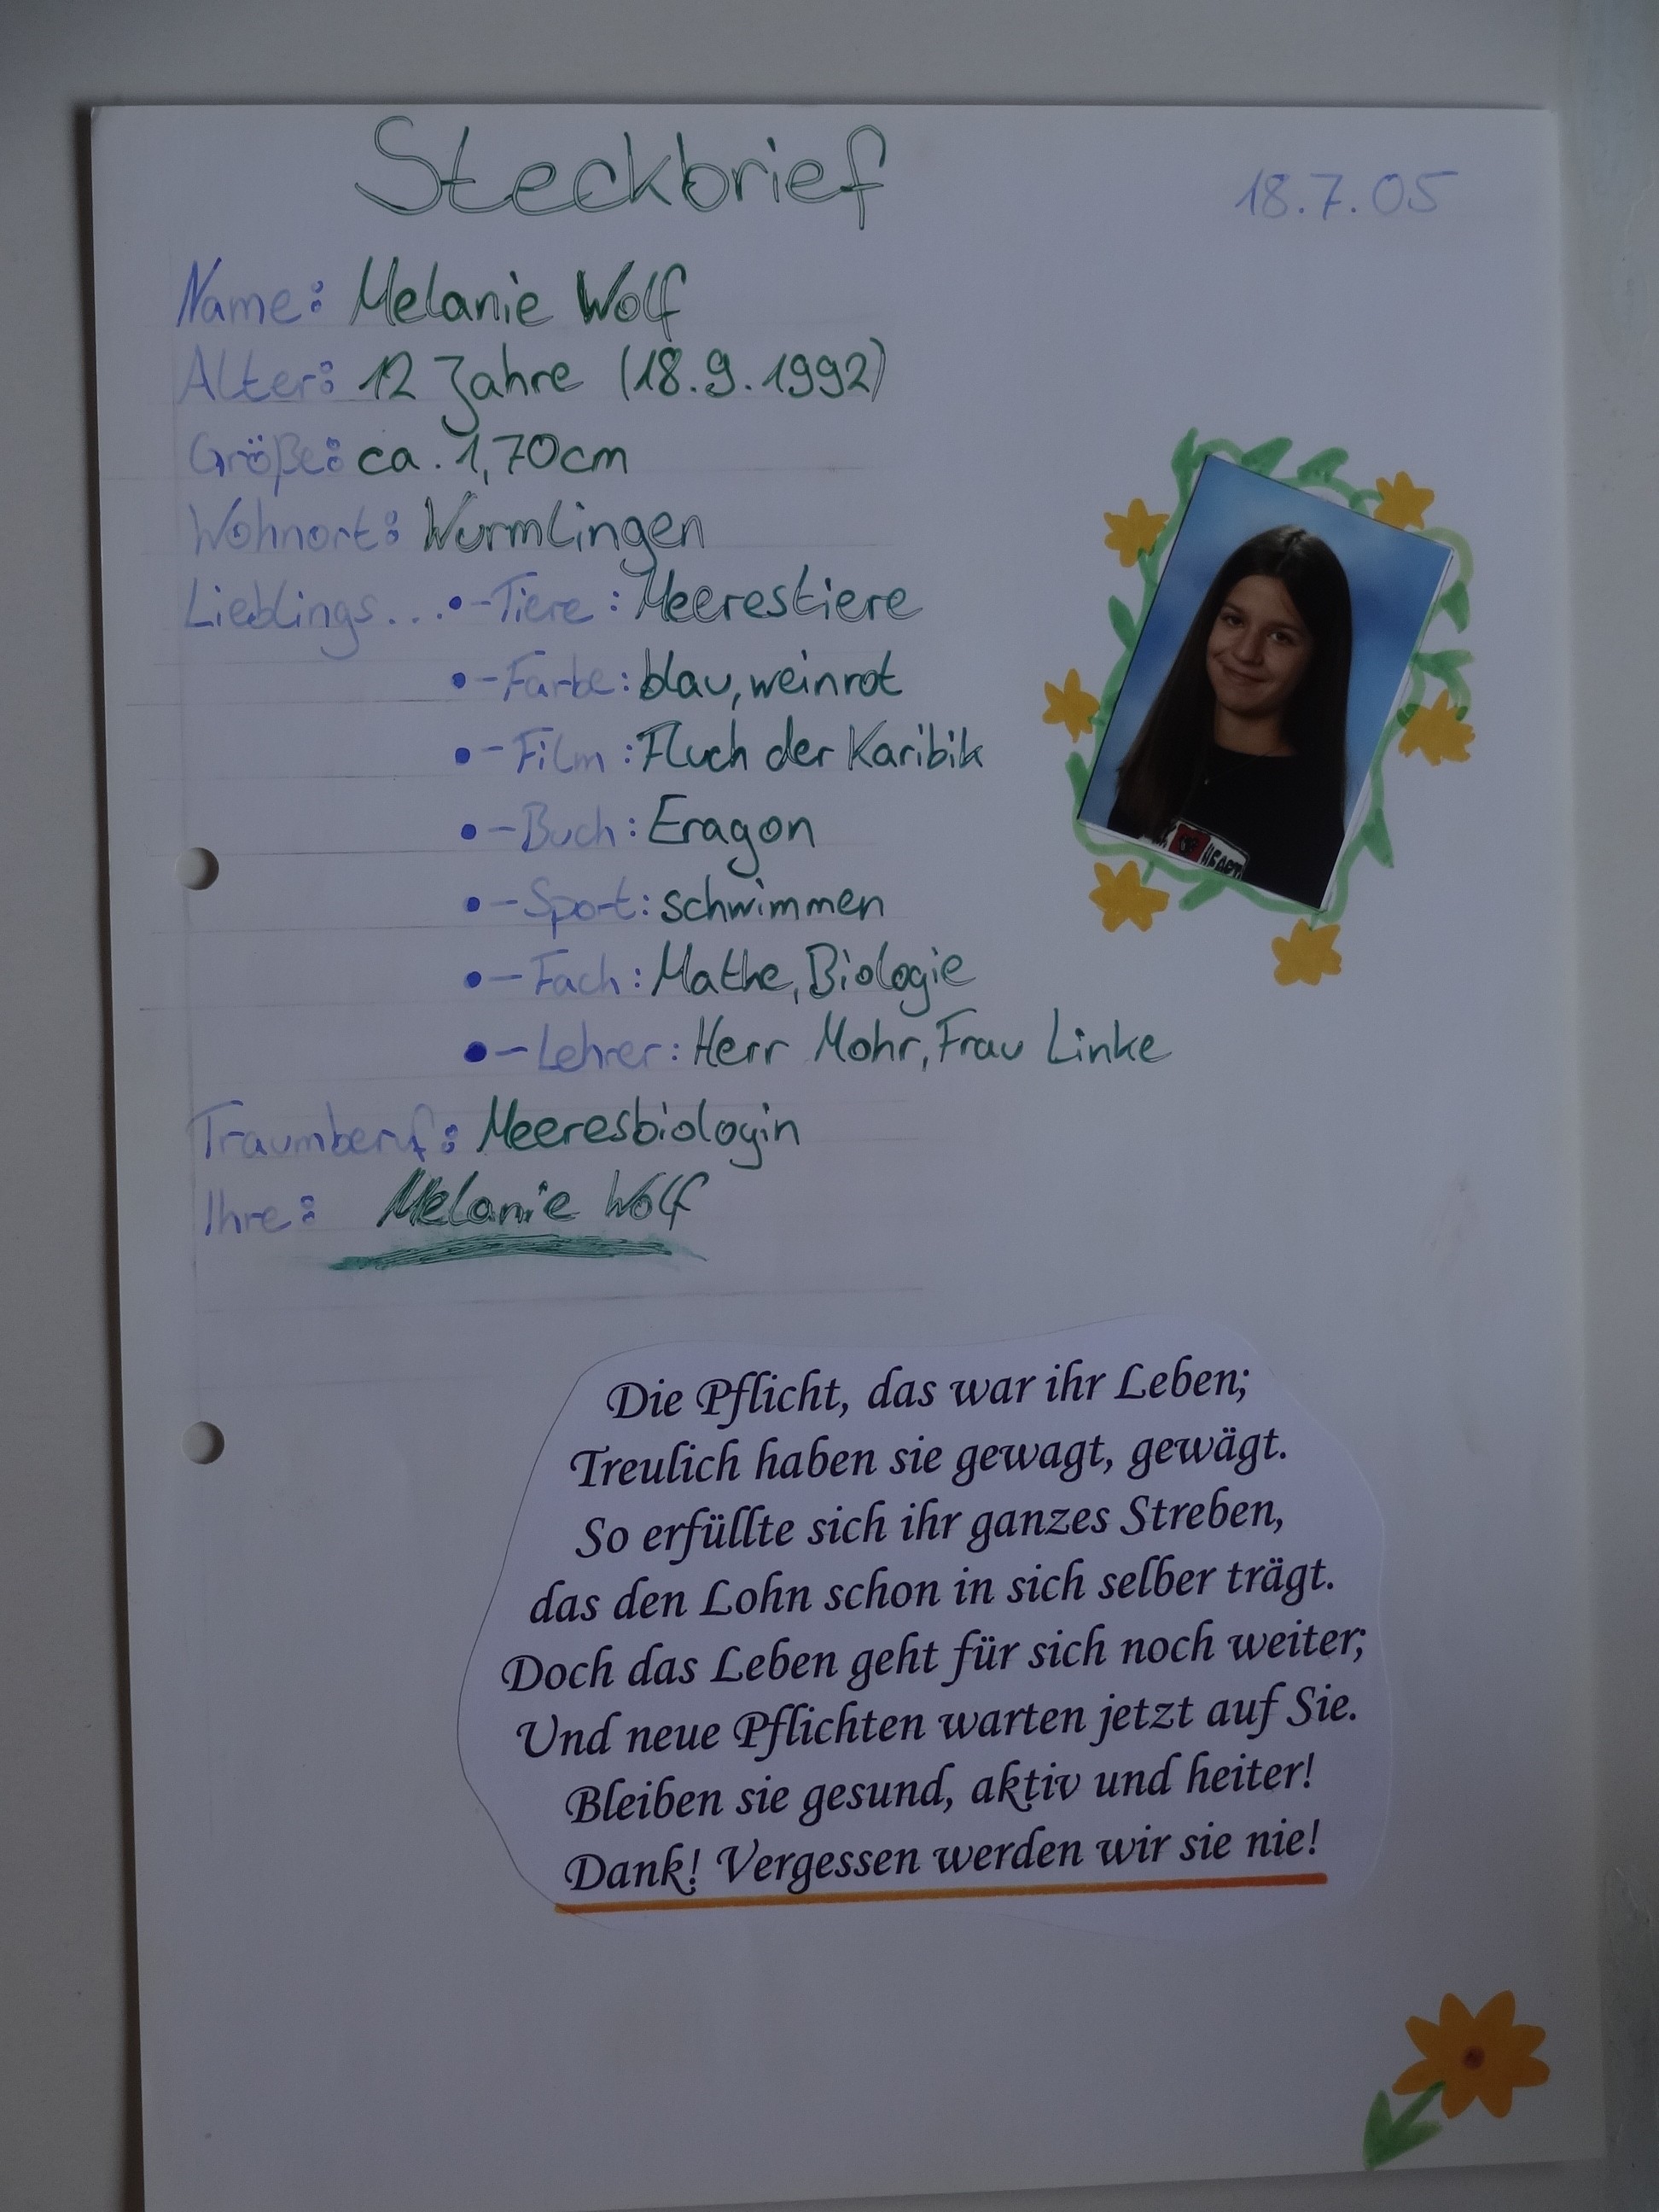 Steckbrief
18.7.05
Name: Melanie Wolf
Alter: 12 Jahre (18.9.1992)
Größe: ca. 1,70cm
Wohnort: Wurmlingen
Lieblings...•-Tiere: Meerestiere
•-Farbe: blau, weinrot
•-Film: Fluch der Karibik
•-Buch: Eragon
•-Sport: schwimmen
•-Fach: Mathe, Biologie
•-Lehrer: Herr Mohr, Frau Linke
Traumberuf: Meeresbiologin
Ihre: Melanie Wolf
Die Pflicht, das war ihr Leben;
Treulich haben sie gewagt, gewägt.
So erfüllte sich ihr ganzes Streben,
das den Lohn schon in sich selber trägt.
Doch das Leben geht für sich noch weiter;
Und neue Pflichten warten jetzt auf Sie.
Bleiben sie gesund, aktiv und heiter!
Dank! Vergessen werden wir sie nie!